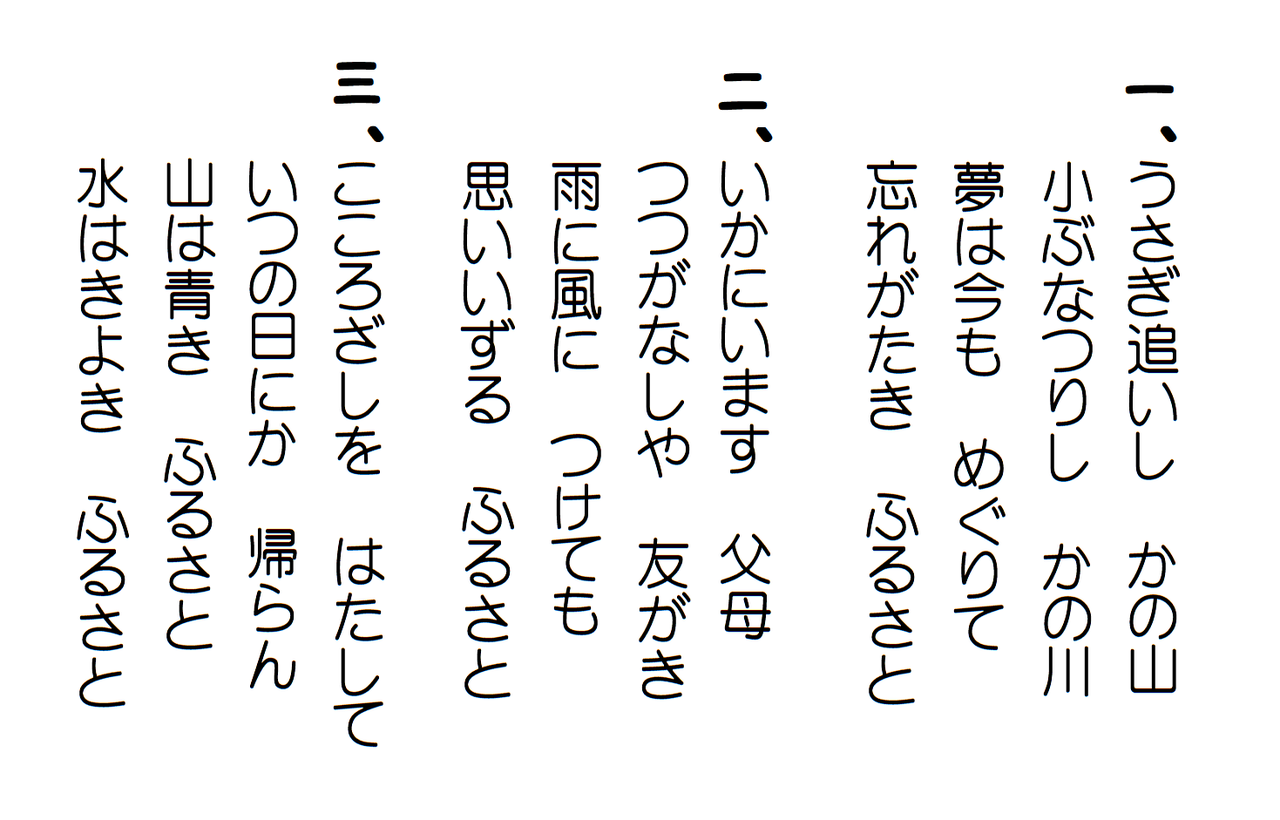 一、うさぎ追いし　かの山
小ぶなつりし　かの川
夢は今も　めぐりて
忘れがたき　ふるさと
二、いかにいます　父母
つつがなしや　友がき
雨に風に　つけても
思いいずる　ふるさと
三、こころざしを　はたして
いつの日にか　帰らん
山は青き　ふるさと
水はきよき　ふるさと